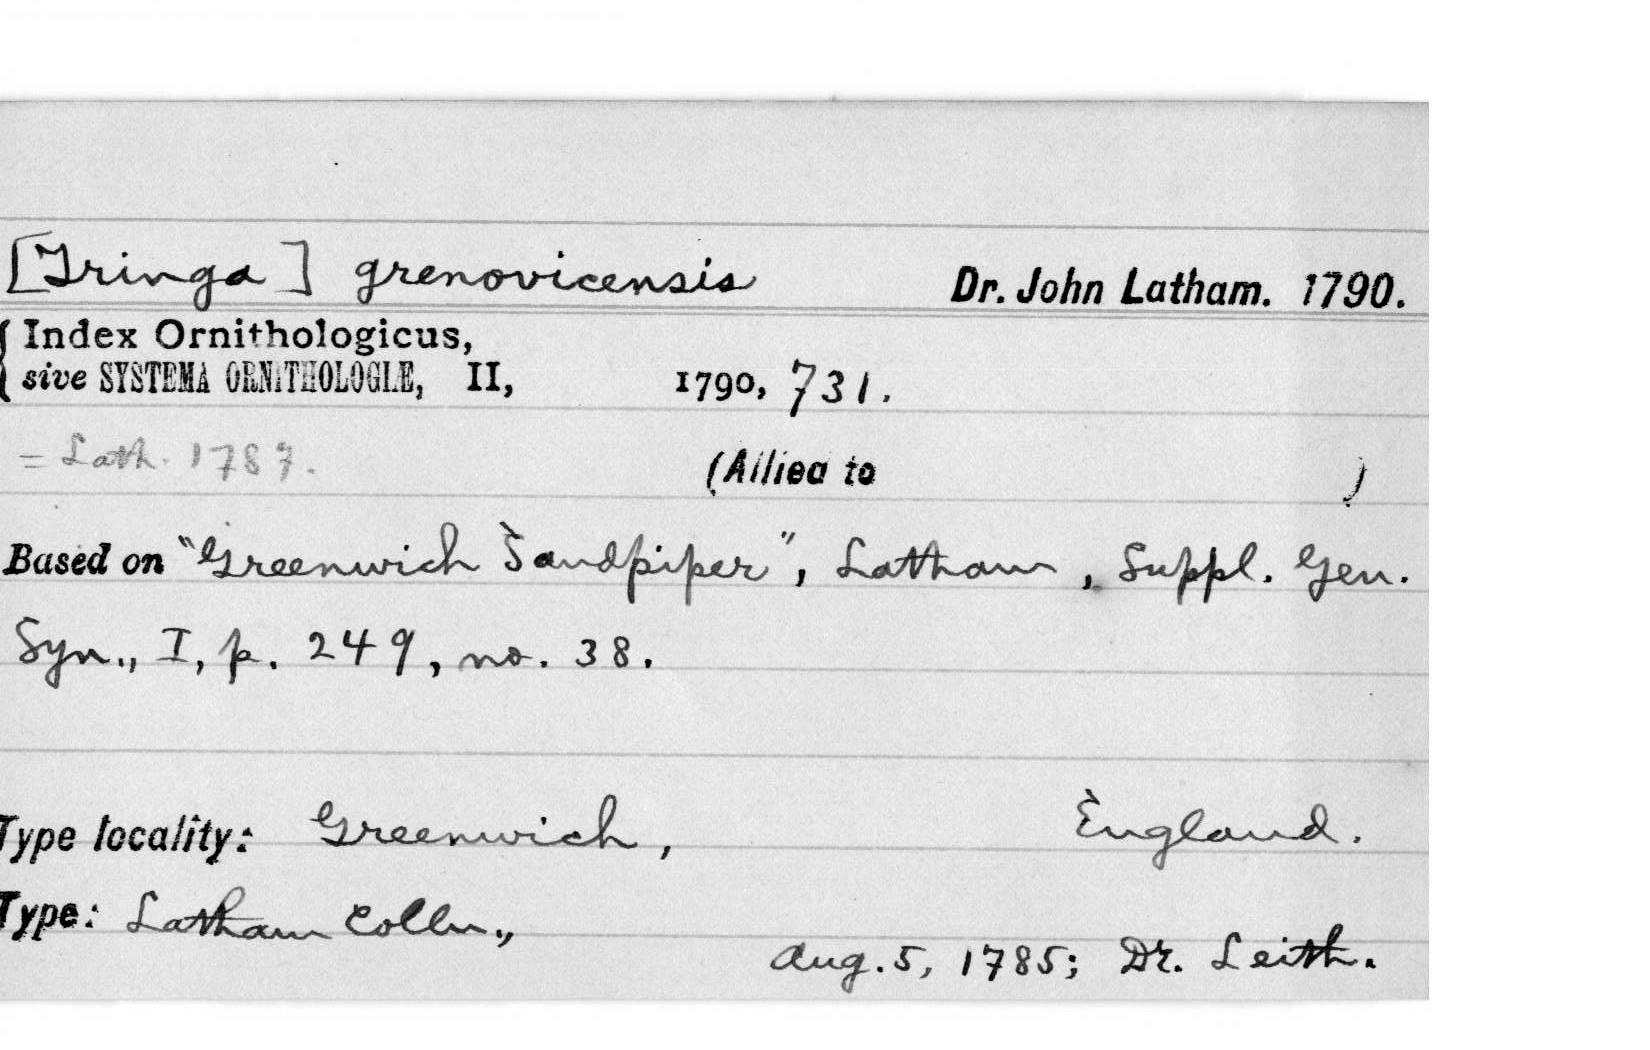 [Tringa] grenovicensis Dr. John Latham. 1790.
{ Index Ornithologicus,
sive SYSTEMA ORNITHOLOGIÆ, II, 1790, 731.
= Lath. 1787. (Allied to )
Based on "Greenwich Sandpiper", Latham, Suppl. Gen.
Syn., I, p. 249, no. 38.
Type locality: Greenwich, England.
Type: Latham Colln.,
Aug. 5, 1785; Dr. Leith.